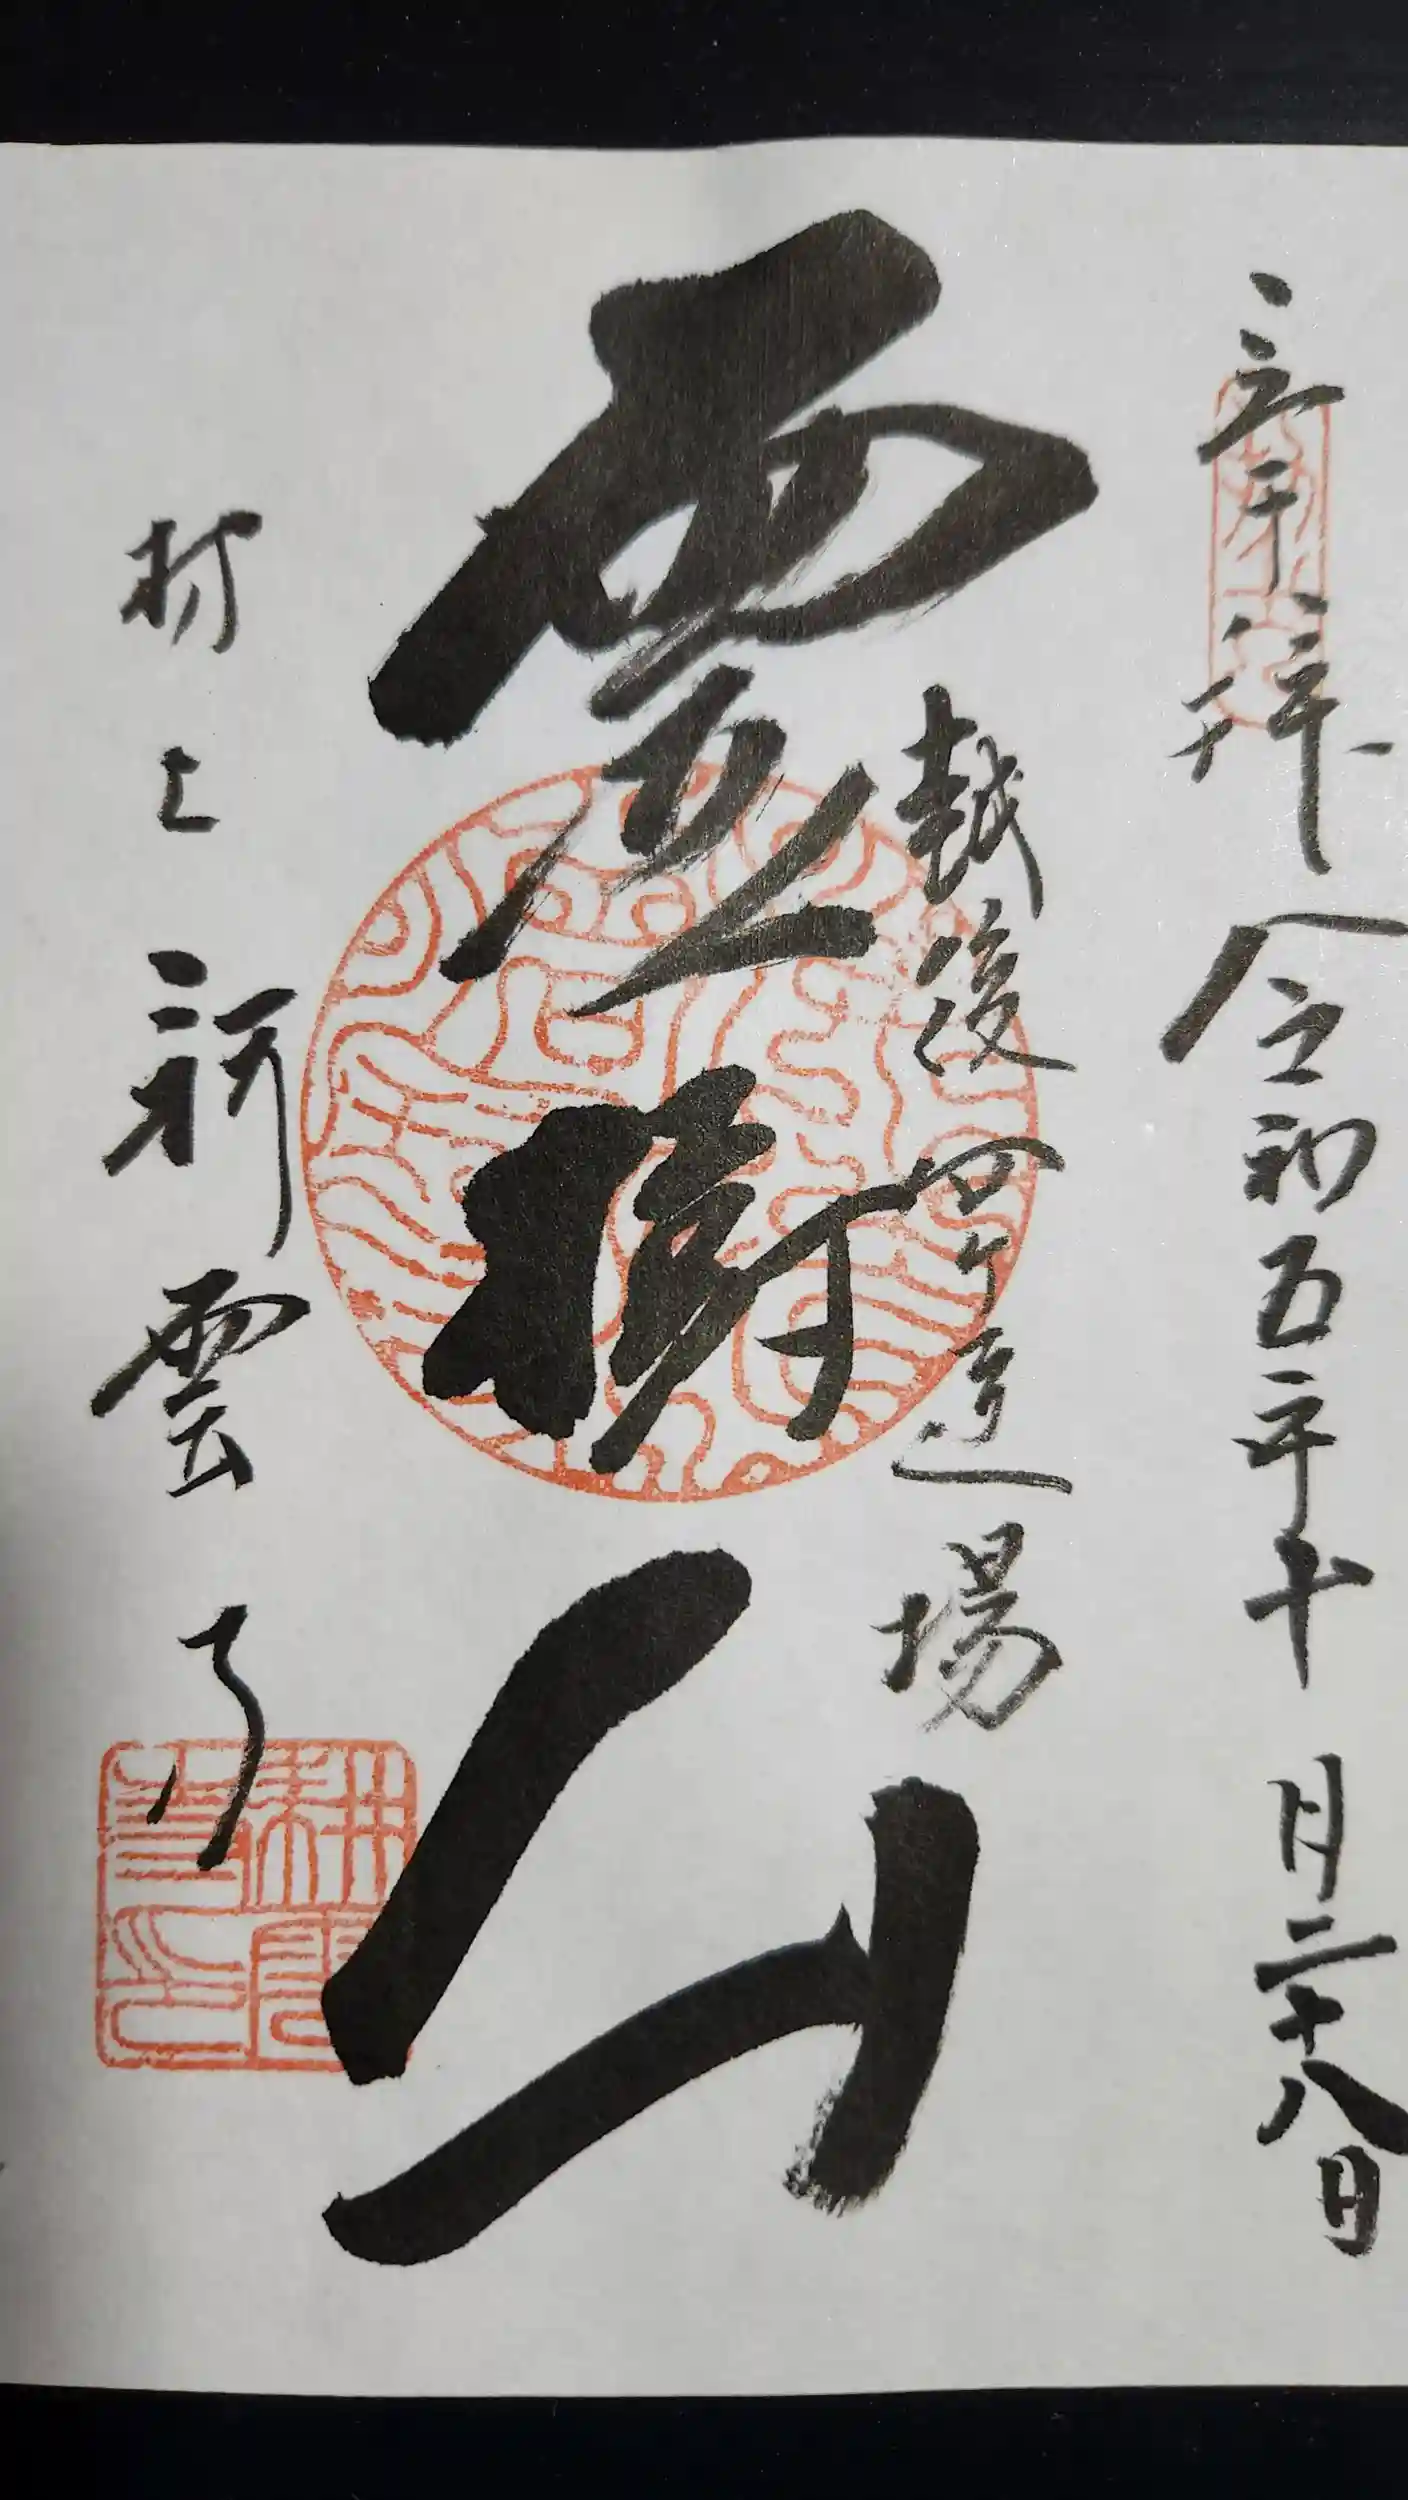 奉拝 令和五年十月二十八日
越後四ケ道場
霊樹山
村上 耕雲寺